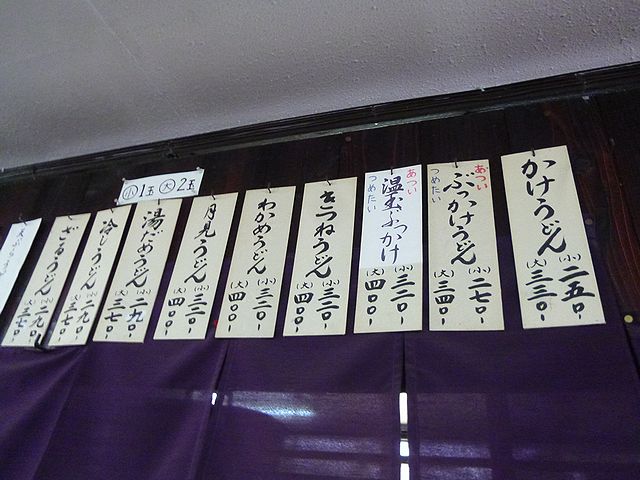 かけうどん
(小)二五〇-
(大)三三〇-
あつい
つめたい
ぶっかけうどん
(小)二七〇-
(大)三四〇-
あつい
つめたい
温玉ぶっかけ
(小)三二〇-
(大)四〇〇-
きつねうどん
(小)三二〇-
(大)四〇〇-
わかめうどん
(小)三二〇-
(大)四〇〇-
月見うどん
(小)三二〇-
(大)四〇〇-
小1玉 大2玉
湯だめうどん
(小)二九〇-
(大)三七〇-
冷しうどん
(小)二九〇-
(大)三七〇-
ざるうどん
(小)二九〇-
(大)三七〇-